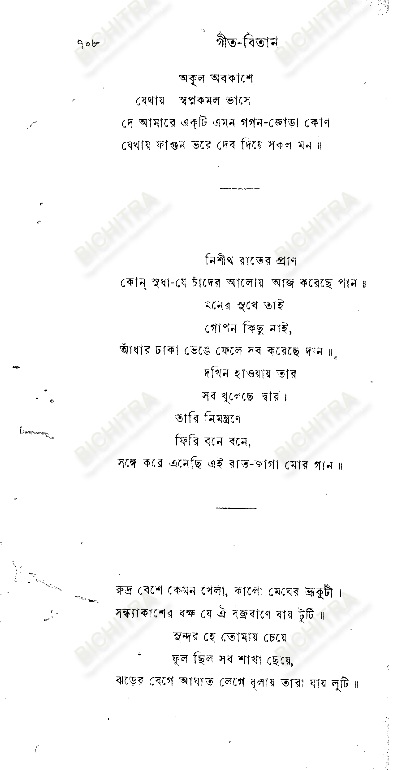 ৭০৮ গীত-বিতান
অকূল অবকাশে
যেথায় স্বপ্নকমল ভাসে
দে আমারে একটি এমন গগন-জোড়া কোণ
যেথায় ফাগুন ভরে দেব দিয়ে সকল মন॥
নিশীথ রাতের প্রাণ
কোন্ সুধা-যে চাঁদের আলোয় আজ করেছে পান॥
মনের সুখে তাই
গোপন কিছু নাই,
আঁধার ঢাকা ভেঙে ফেলে সব করেছে দান॥
দখিন হাওয়ায় তার
সব খুলেছে দ্বার।
তারি নিমন্ত্রণে
ফিরি বনে বনে,
সঙ্গে করে এনেছি এই রাত-জাগা মোর গান॥
রুদ্র বেশে কেমন খেলা, কালো মেঘের ভ্রূকুটী।
সন্ধ্যাকাশের বক্ষ যে ঐ বজ্রবাণে যায় টুটি॥
সুন্দর হে তোমায় চেয়ে
ফুল ছিল সব শাখা ছেয়ে,
ঝড়ের বেগে আঘাত লেগে ধূলায় তারা যায় লুটি॥
BICHITRA
BICHITRA
BICHITRA
BICHITRA
BICHITRA
BICHITRA
BICHITRA
BICHITRA